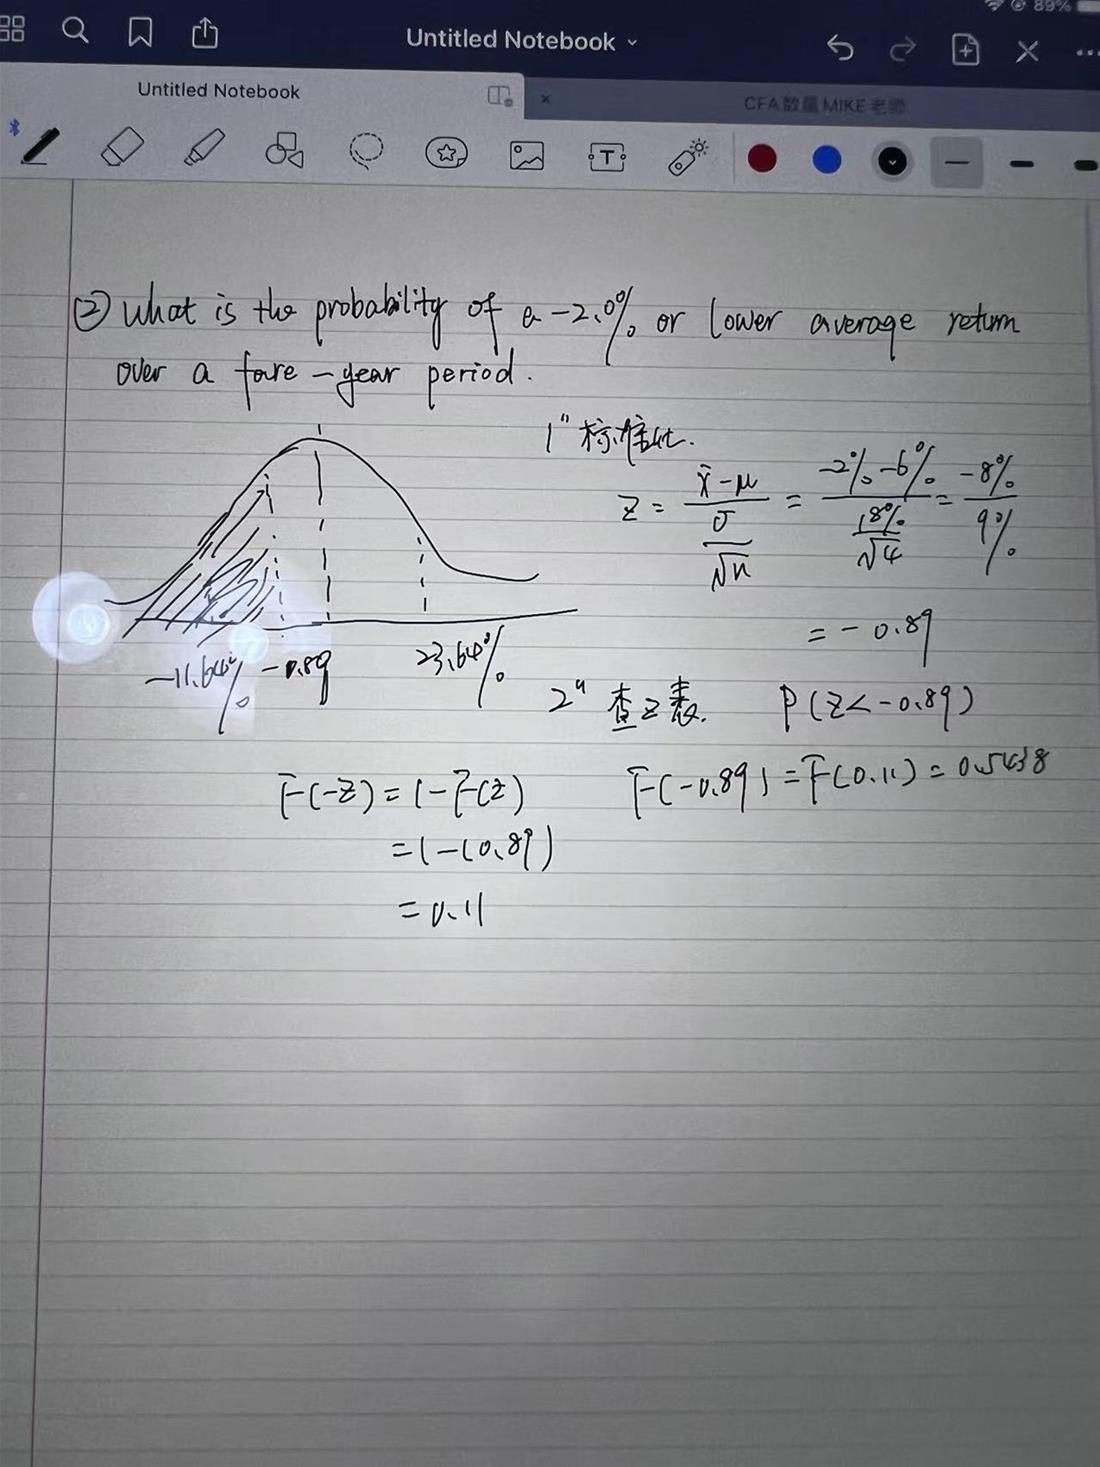 89%
Untitled Notebook
Untitled Notebook
CFA数量MIKE老师
T
② What is the probability of a -2.0% or lower average return
over a foure-year period.
1" 标准化.
Z = (x̄-μ)/(σ/√n) = (-2%-6%)/(18%/√4) = -8%/9%
= -0.89
-11.64% -0.89 23.64%
2" 查Z表. P(Z<-0.89)
F(-Z)=1-F(Z) F(-0.89)=F(0.11)=0.5438
=1-(0.89)
=0.11